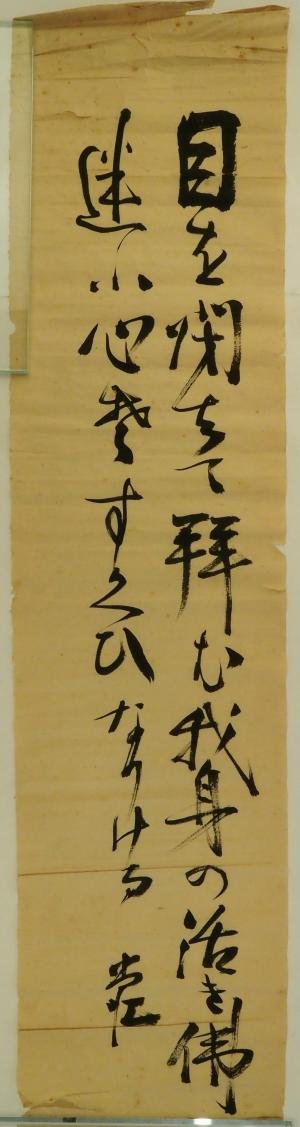 目をちて拝む我身の活き佛
迷ふ心そすくひなりける